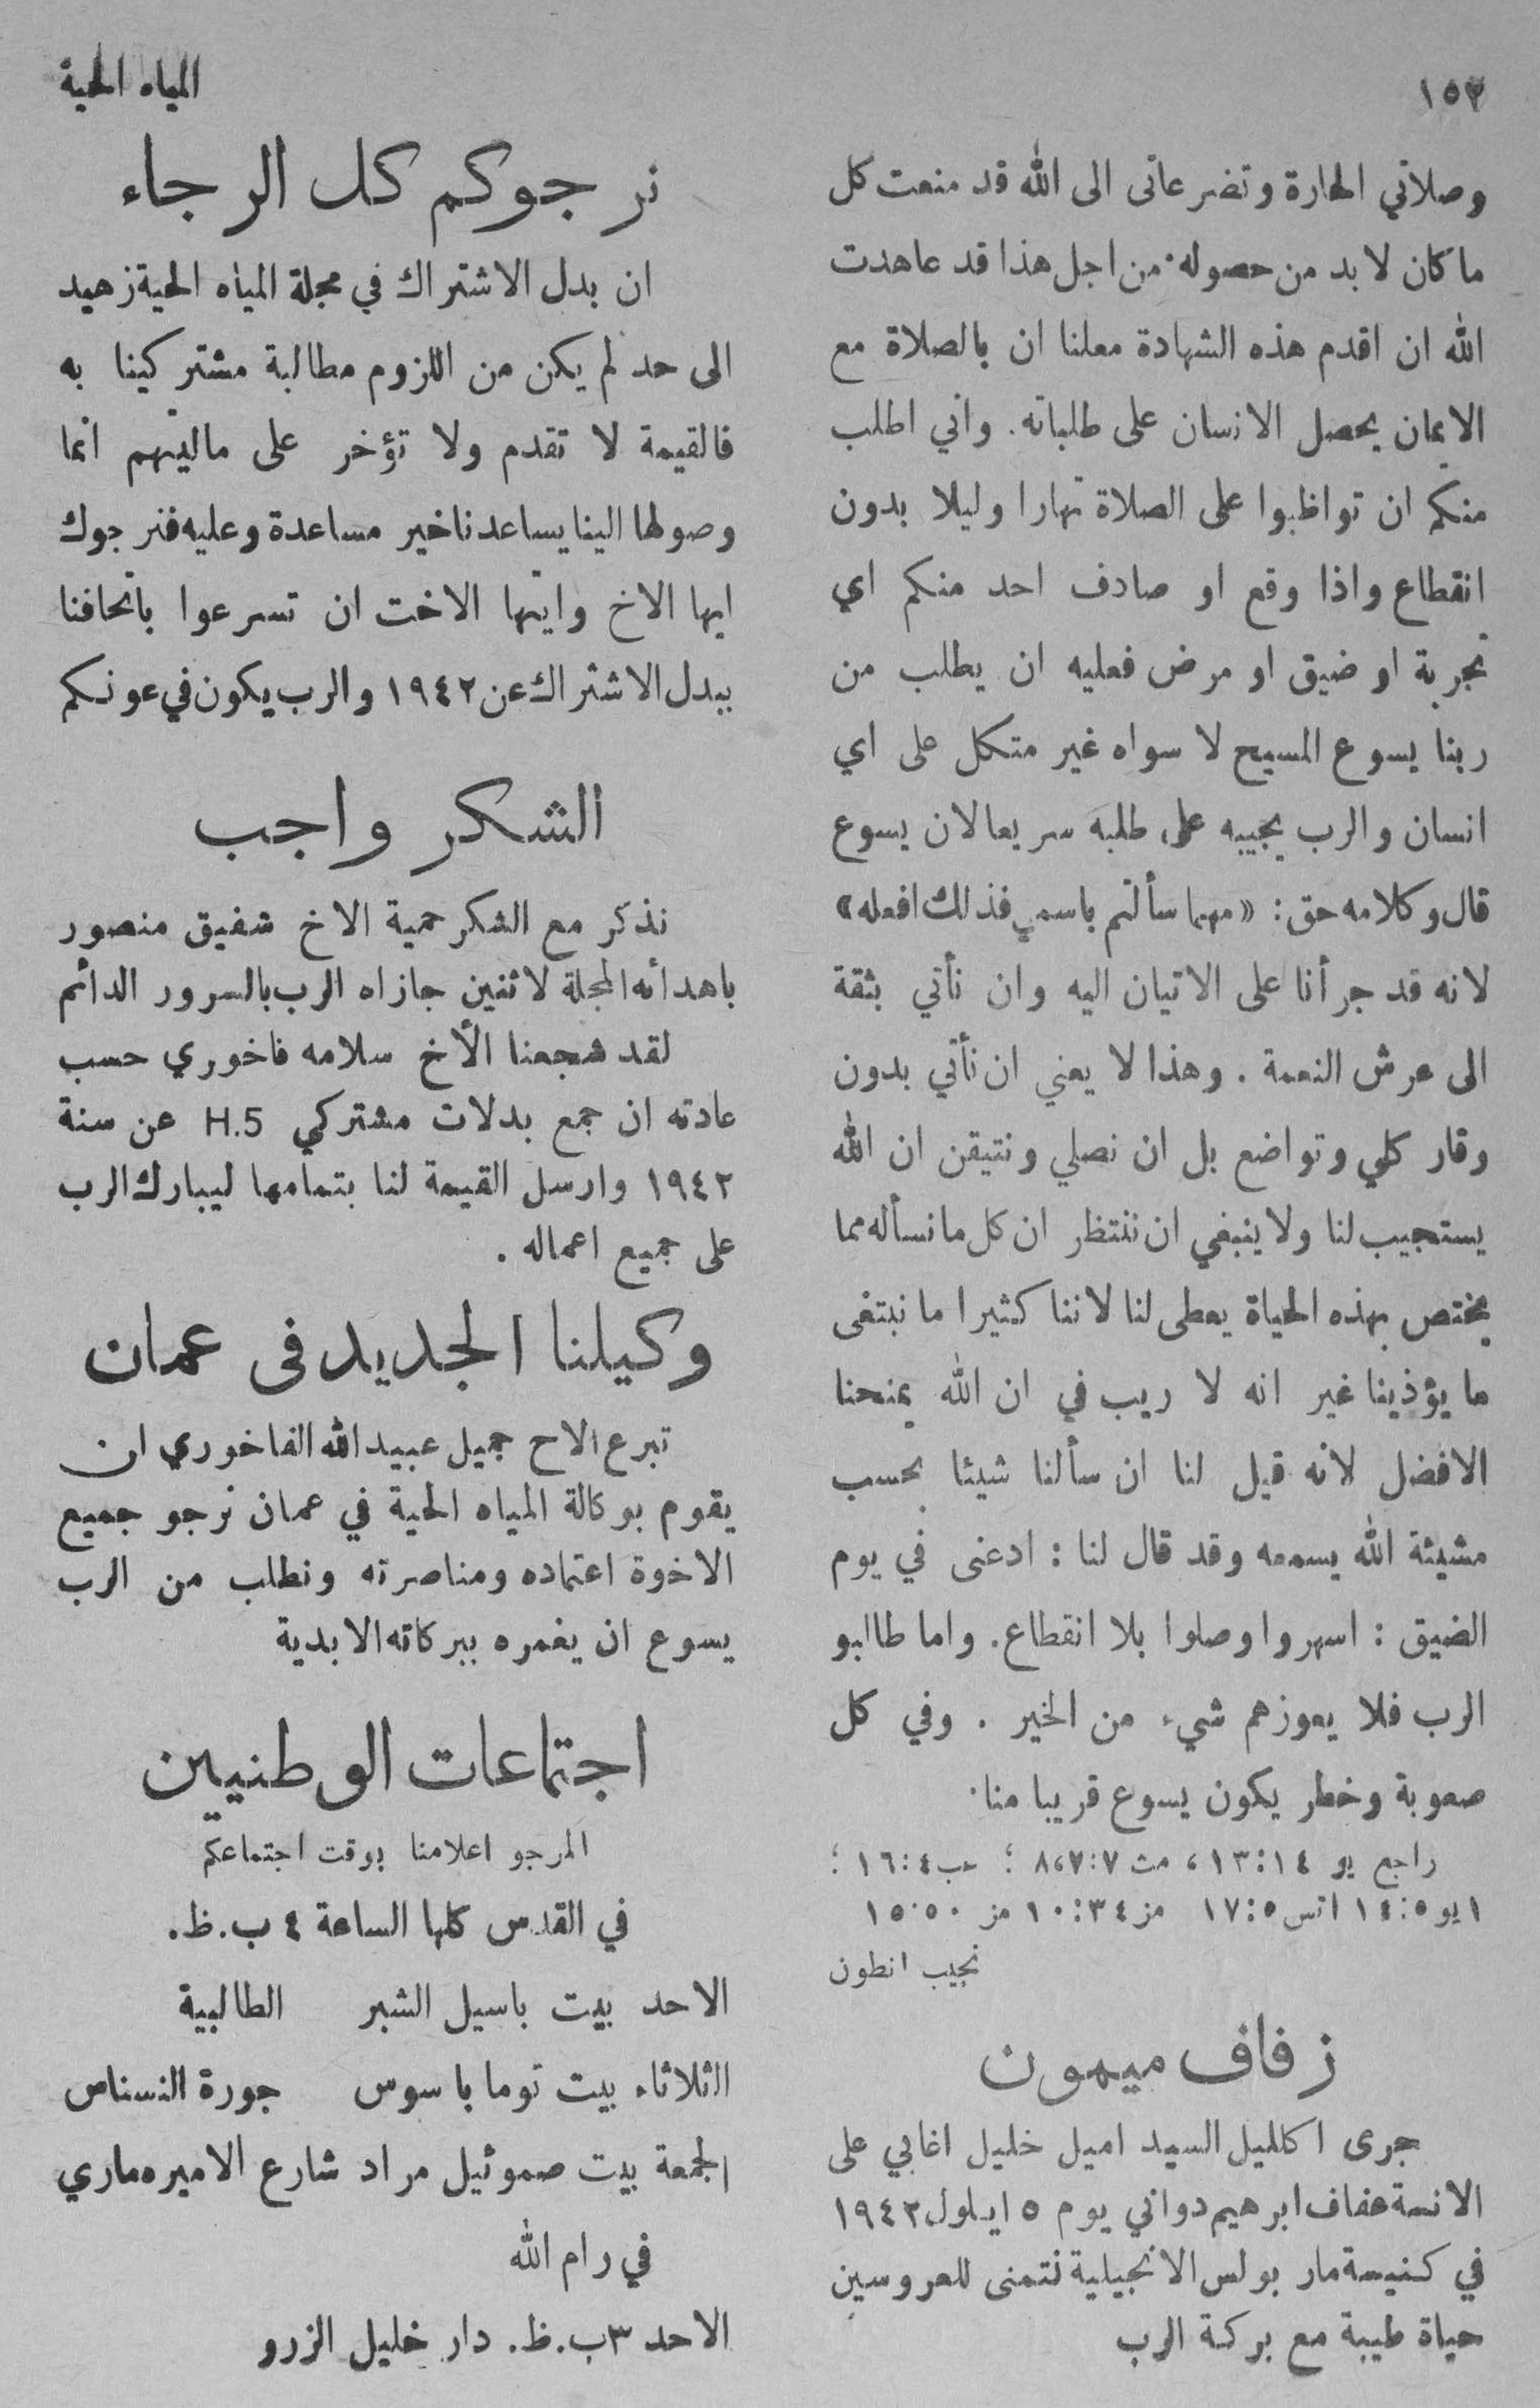 ١٥٢
المياه الحية
وصلاتي الحارة وتضرعاتى الى الله قد منعت كل
ما كان لا بد من حصوله. من اجل هذا قد عاهدت
الله ان اقدم هذه الشهادة معلنا ان بالصلاة مع
الايمان يحصل الانسان على طلباته. واني اطلب
منكم ان تواظبوا على الصلاة نهارا وليلا بدون
انقطاع واذا وقع او صادف احد منكم اي
تجربة او ضيق او مرض فعليه ان يطلب من
ربنا يسوع المسيح لا سواه غير متكل على اي
انسان والرب يجيبه على طلبه سريعا لان يسوع
قال وكلامه حق: «مهما سألتم باسمي فذلك افعله»
لانه قد جرأنا على الاتيان اليه وان نأتي بثقة
الى عرش النعمة. وهذا لا يعني ان نأتي بدون
وقار كلي وتواضع بل ان نصلي ونتيقن ان الله
يستجيب لنا ولا ينبغي ان ننتظر ان كل ما نسأله مما
يختص بهذه الحياة يعطى لنا لاننا كثيرا ما نبتغى
ما يؤذينا غير انه لا ريب في ان الله يمنحنا
الافضل لانه قيل لنا ان سألنا شيئا بحسب
مشيئة الله يسمعه وقد قال لنا: ادعنى في يوم
الضيق: اسهروا وصلوا بلا انقطاع. واما طالبو
الرب فلا يعوزهم شيء من الخير. وفي كل
صعوبة وخطر يكون يسوع قريبا منا.
راجع يو ١٣:١٤، مت ٨،٧:٧؛ عب ١٦:٤؛
١يو ١٤:٥ اتس ١٧:٥ مز ١٠:٣٤ مز ١٥:٥٠
نجيب انطون
زفاف ميمون
جرى اكلليل السيد اميل خليل اغابي على
الانسة عفاف ابرهيم دواني يوم ٥ ايلول ١٩٤٢
في كنيسة مار بولس الانجيلية نتمنى للعروسين
حياة طيبة مع بركة الرب
نرجوكم كل الرجاء
ان بدل الاشتراك في مجلة المياه الحية زهيد
الى حد لم يكن من اللزوم مطالبة مشتركينا به
فالقيمة لا تقدم ولا تؤخر على ماليتهم انما
وصولها الينا يساعدنا خير مساعدة وعليه فنرجوك
ايها الاخ وايتها الاخت ان تسرعوا باتحافنا
ببدل الاشتراك عن ١٩٤٢ والرب يكون في عونكم
الشكر واجب
نذكر مع الشكر حمية الاخ شفيق منصور
باهدائه المجلة لاثنين جازاه الرب بالسرور الدائم
لقد شجعنا الأخ سلامه فاخوري حسب
عادته ان جمع بدلات مشتركي H.5 عن سنة
١٩٤٢ وارسل القيمة لنا بتمامها ليبارك الرب
على جميع اعماله.
وكيلنا الجديد فى عمان
تبرع الاخ جميل عبيد الله الفاخوري ان
يقوم بوكالة المياه الحية في عمان نرجو جميع
الاخوة اعتماده ومناصرته ونطلب من الرب
يسوع ان يغمره ببركاته الابدية
اجتماعات الوطنيين
المرجو اعلامنا بوقت اجتماعكم
في القدس كلها الساعة ٤ ب.ظ.
الاحد بيت باسيل الشبر الطالبية
الثلاثاء بيت توما باسوس جورة النسناس
الجمعة بيت صموئيل مراد شارع الاميره ماري
في رام الله
الاحد ٣ ب.ظ. دار خليل الزرو